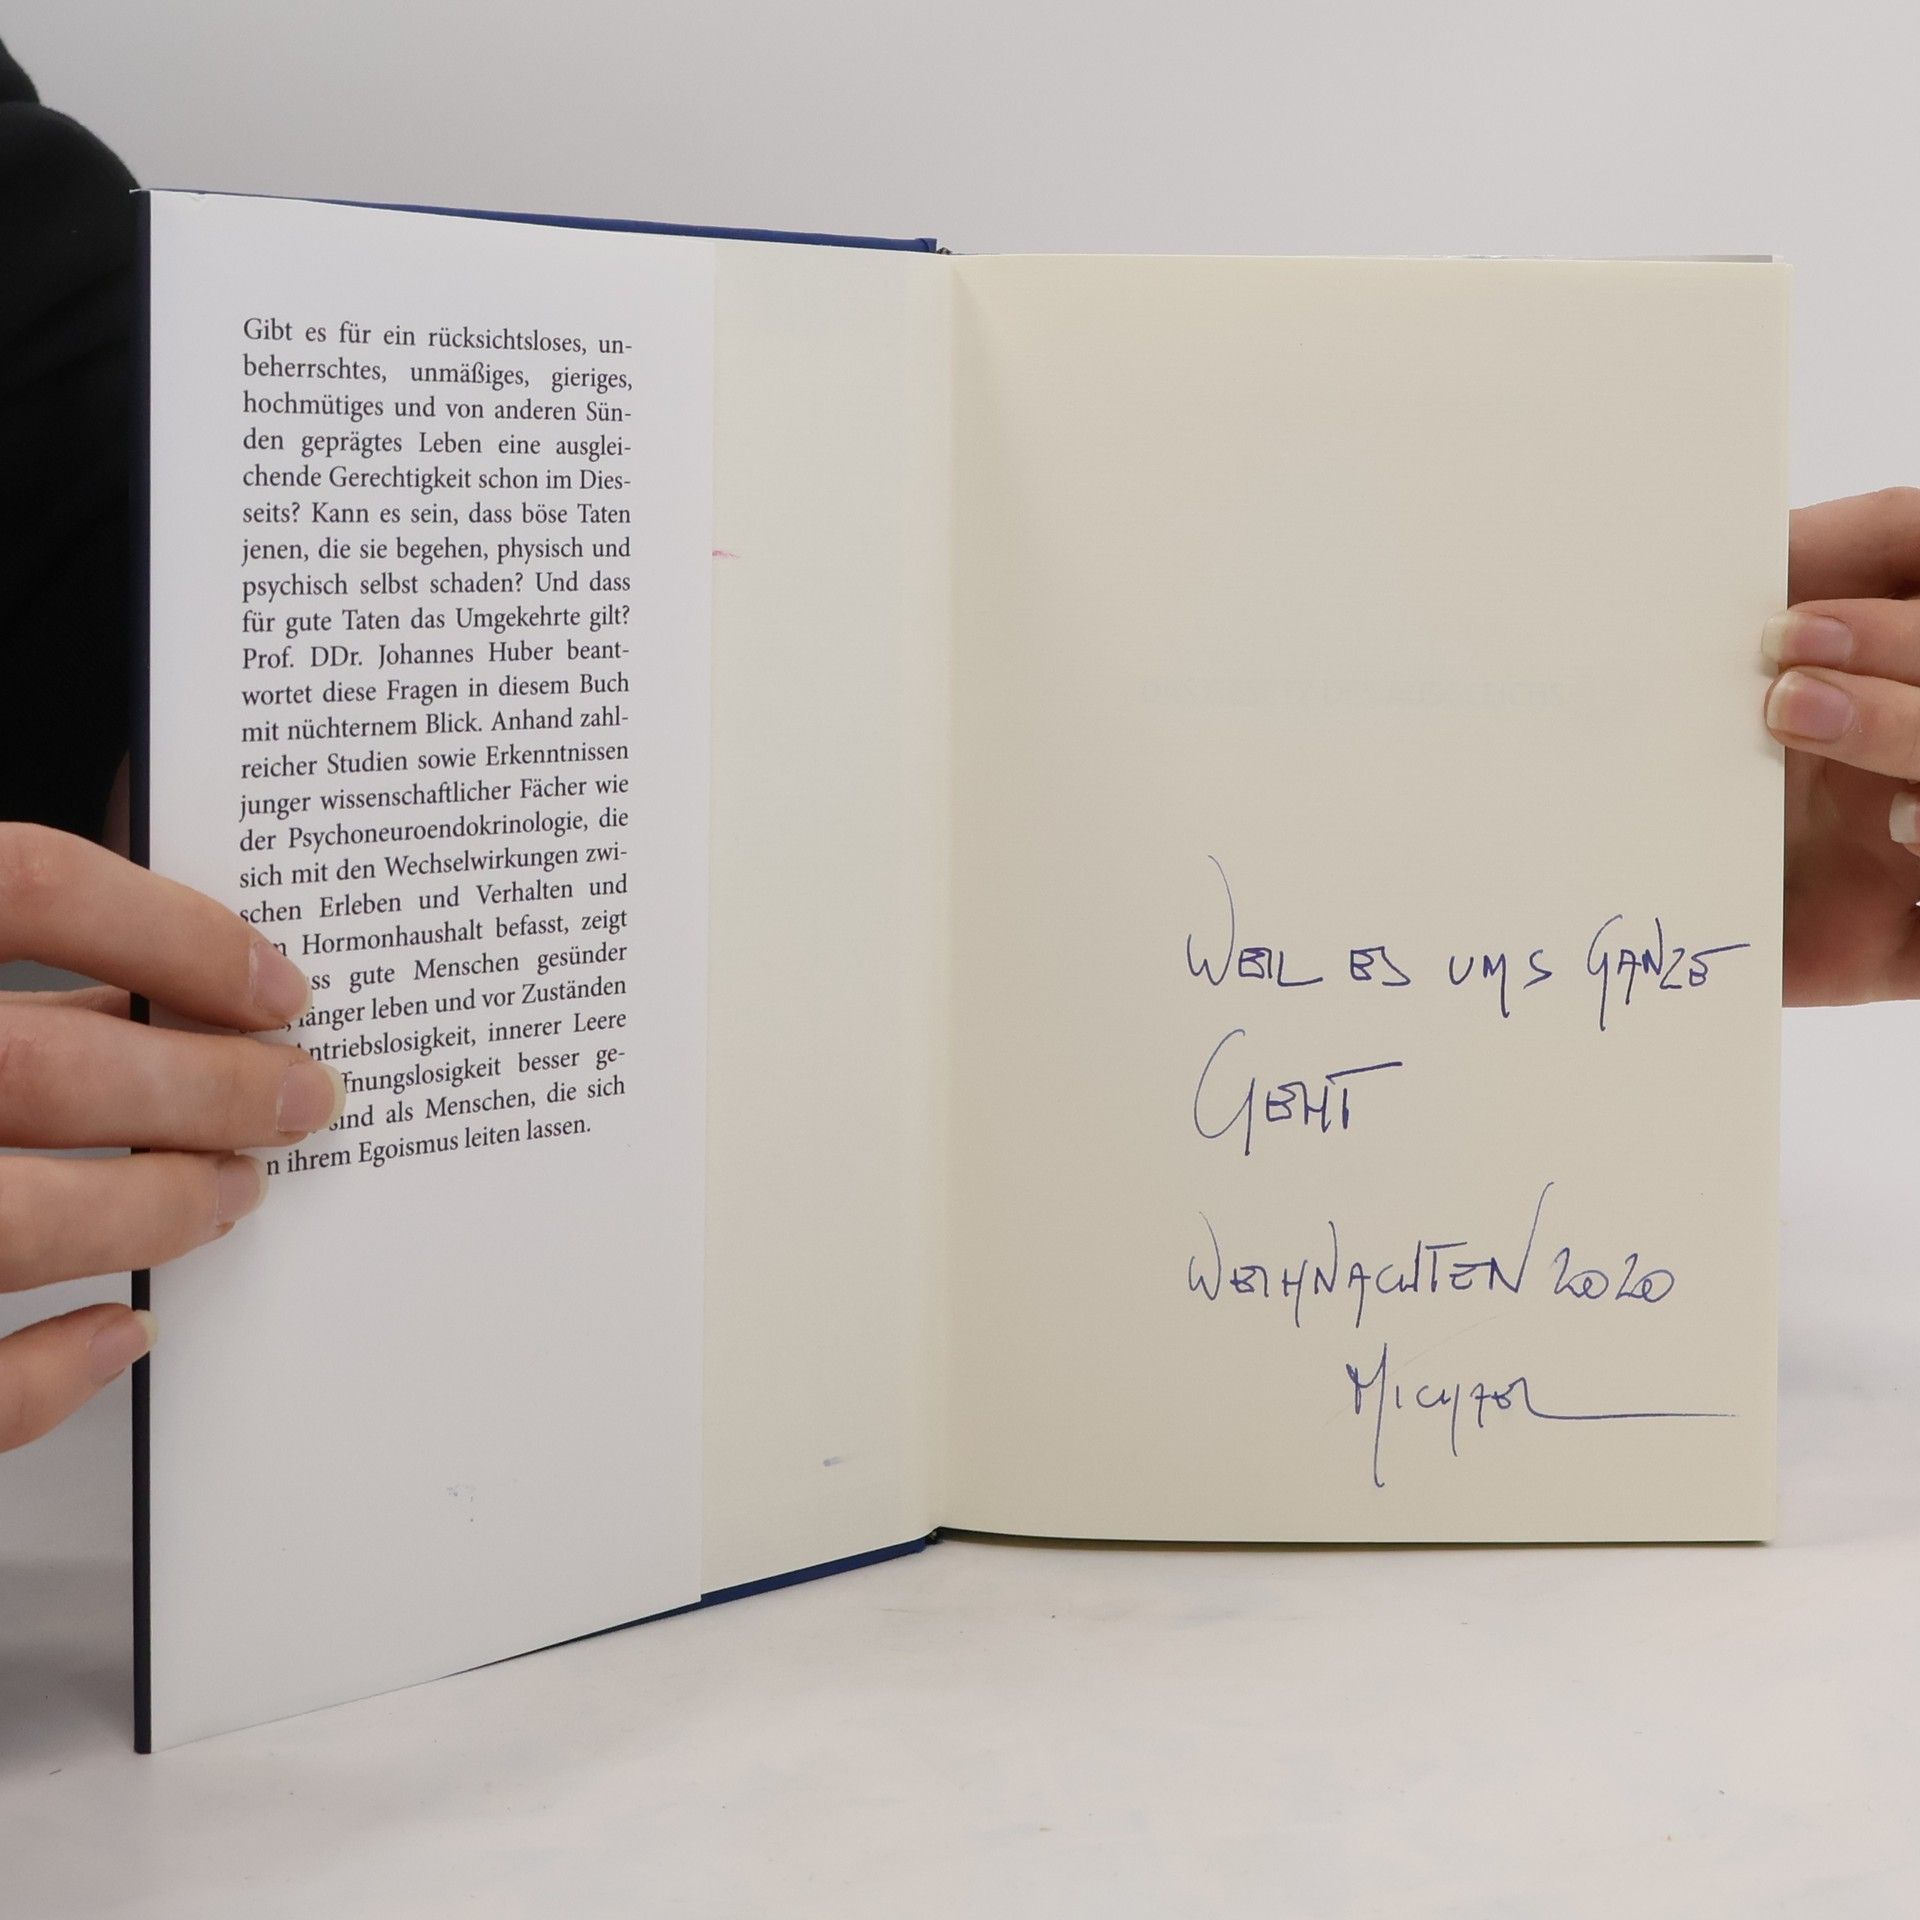 Gibt es für ein rücksichtsloses, un-
beherrschtes, unmäßiges, gieriges,
hochmütiges und von anderen Sün-
den geprägtes Leben eine ausglei-
chende Gerechtigkeit schon im Dies-
seits? Kann es sein, dass böse Taten
jenen, die sie begehen, physisch und
psychisch selbst schaden? Und dass
für gute Taten das Umgekehrte gilt?
Prof. DDr. Johannes Huber beant-
wortet diese Fragen in diesem Buch
mit nüchternem Blick. Anhand zahl-
reicher Studien sowie Erkenntnissen
junger wissenschaftlicher Fächer wie
der Psychoneuroendokrinologie, die
sich mit den Wechselwirkungen zwi-
schen Erleben und Verhalten und
Hormonhaushalt befasst, zeigt
gute Menschen gesünder
länger leben und vor Zuständen
ntriebslosigkeit, innerer Leere
fnungslosigkeit besser ge-
sind als Menschen, die sich
n ihrem Egoismus leiten lassen.
WEIL ES UMS GANZE
GEHT
WEIHNACHTEN 2020
MICHAEL